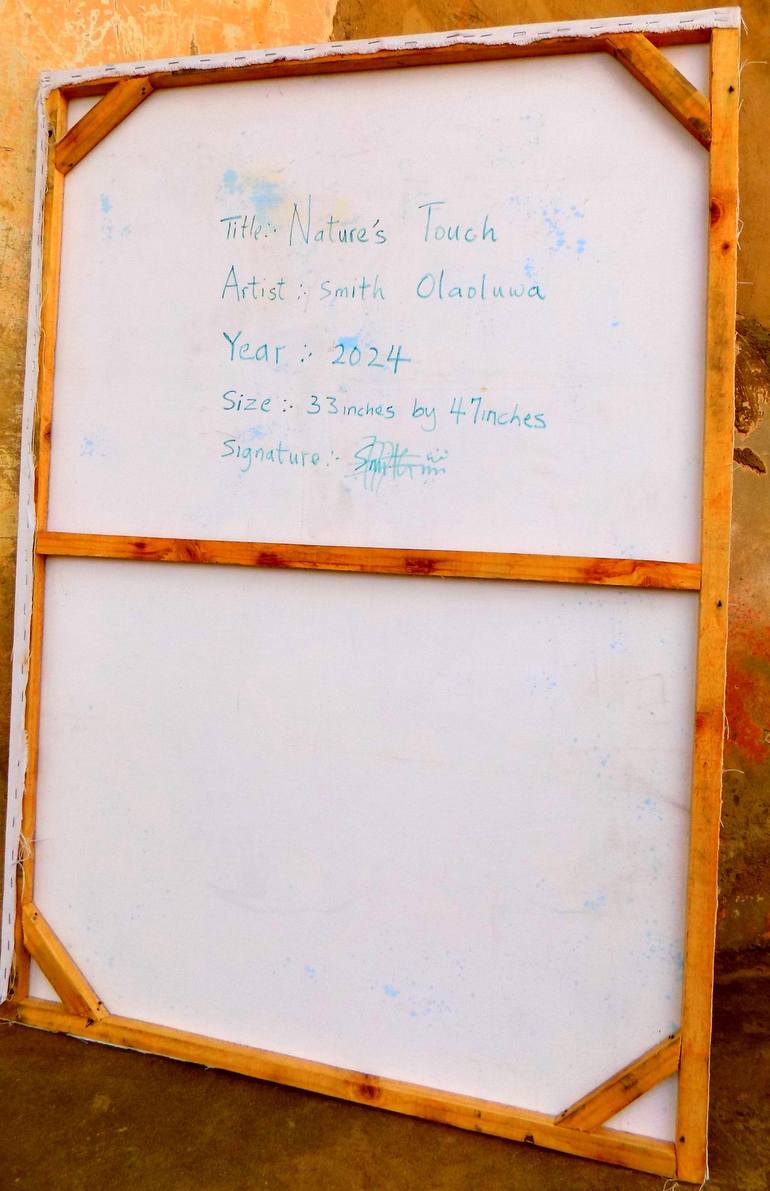 Title:- Nature's Touch
Artist:- Smith Olaoluwa
Year:- 2024
Size:- 33inches by 47inches
Signature:-